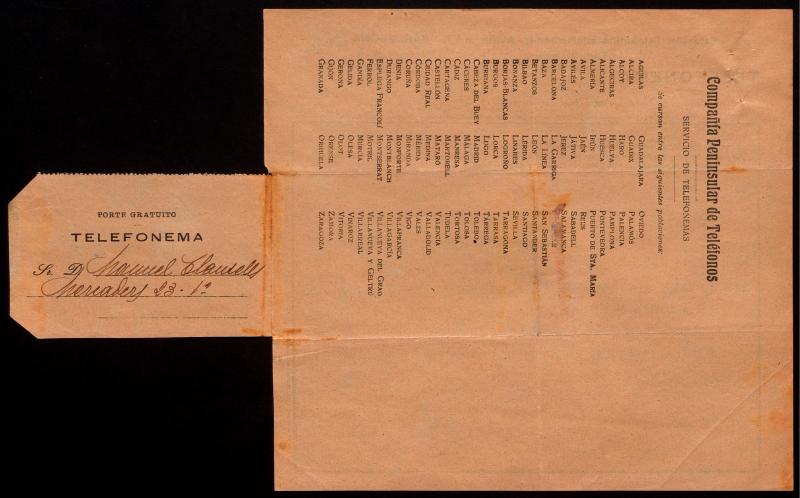 PORTE GRATUITO
TELEFONEMA
Sr. D. Manuel Clausells
Mercaders 23 - 1º
Compañía Peninsular de Teléfonos
SERVICIO DE TELEFONEMAS
Se cursan entre las siguientes poblaciones:
AGUILAS GUADALAJARA OVIEDO
ALCIRA GUADIX PALAMÓS
ALCOY HARO PALENCIA
ALGECIRAS HUELVA PAMPLONA
ALICANTE HUESCA PONTEVEDRA
ALMERÍA IRÚN PUERTO DE STA. MARÍA
AVILA JAÉN REUS
AVILÉS JÁTIVA SABADELL
BADAJOZ JEREZ SALAMANCA
BARCELONA LA GARRIGA
BAZA LA LÍNEA SAN SEBASTIÁN
BETANZOS LEÓN SANTANDER
BILBAO LÉRIDA SANTIAGO
BONANZA LINARES SEVILLA
BORJAS-BLANCAS LOGROÑO TARRAGONA
BURGOS LORCA TARRASA
BURRIANA LUGO TÁRREGA
CABEZA DEL BUEY MADRID TOLEDO
CÁCERES MÁLAGA TOLOSA
CÁDIZ MANRESA TORTOSA
CARTAGENA MARTORELL TUDELA
CASTELLÓN MATARÓ VALENCIA
CIUDAD REAL MEDINA VALLADOLID
CÓRDOBA MÉRIDA VALLS
CORUÑA MIRANDA VIGO
DENIA MONFORTE VILLAFRANCA
DURANGO MONTBLANCH VILLAGARCÍA
ESPLUGA FRANCOLÍ MONTSERRAT VILLANUEVA DEL GRAO
FERROL MOTRIL VILLANUEVA Y GELTRÚ
GANDÍA MURCIA VILLARREAL
GELIDA OLESA VINAROZ
GERONA OLOT VITORIA
GIJÓN ORENSE ZAMORA
GRANADA ORIHUELA ZARAGOZA